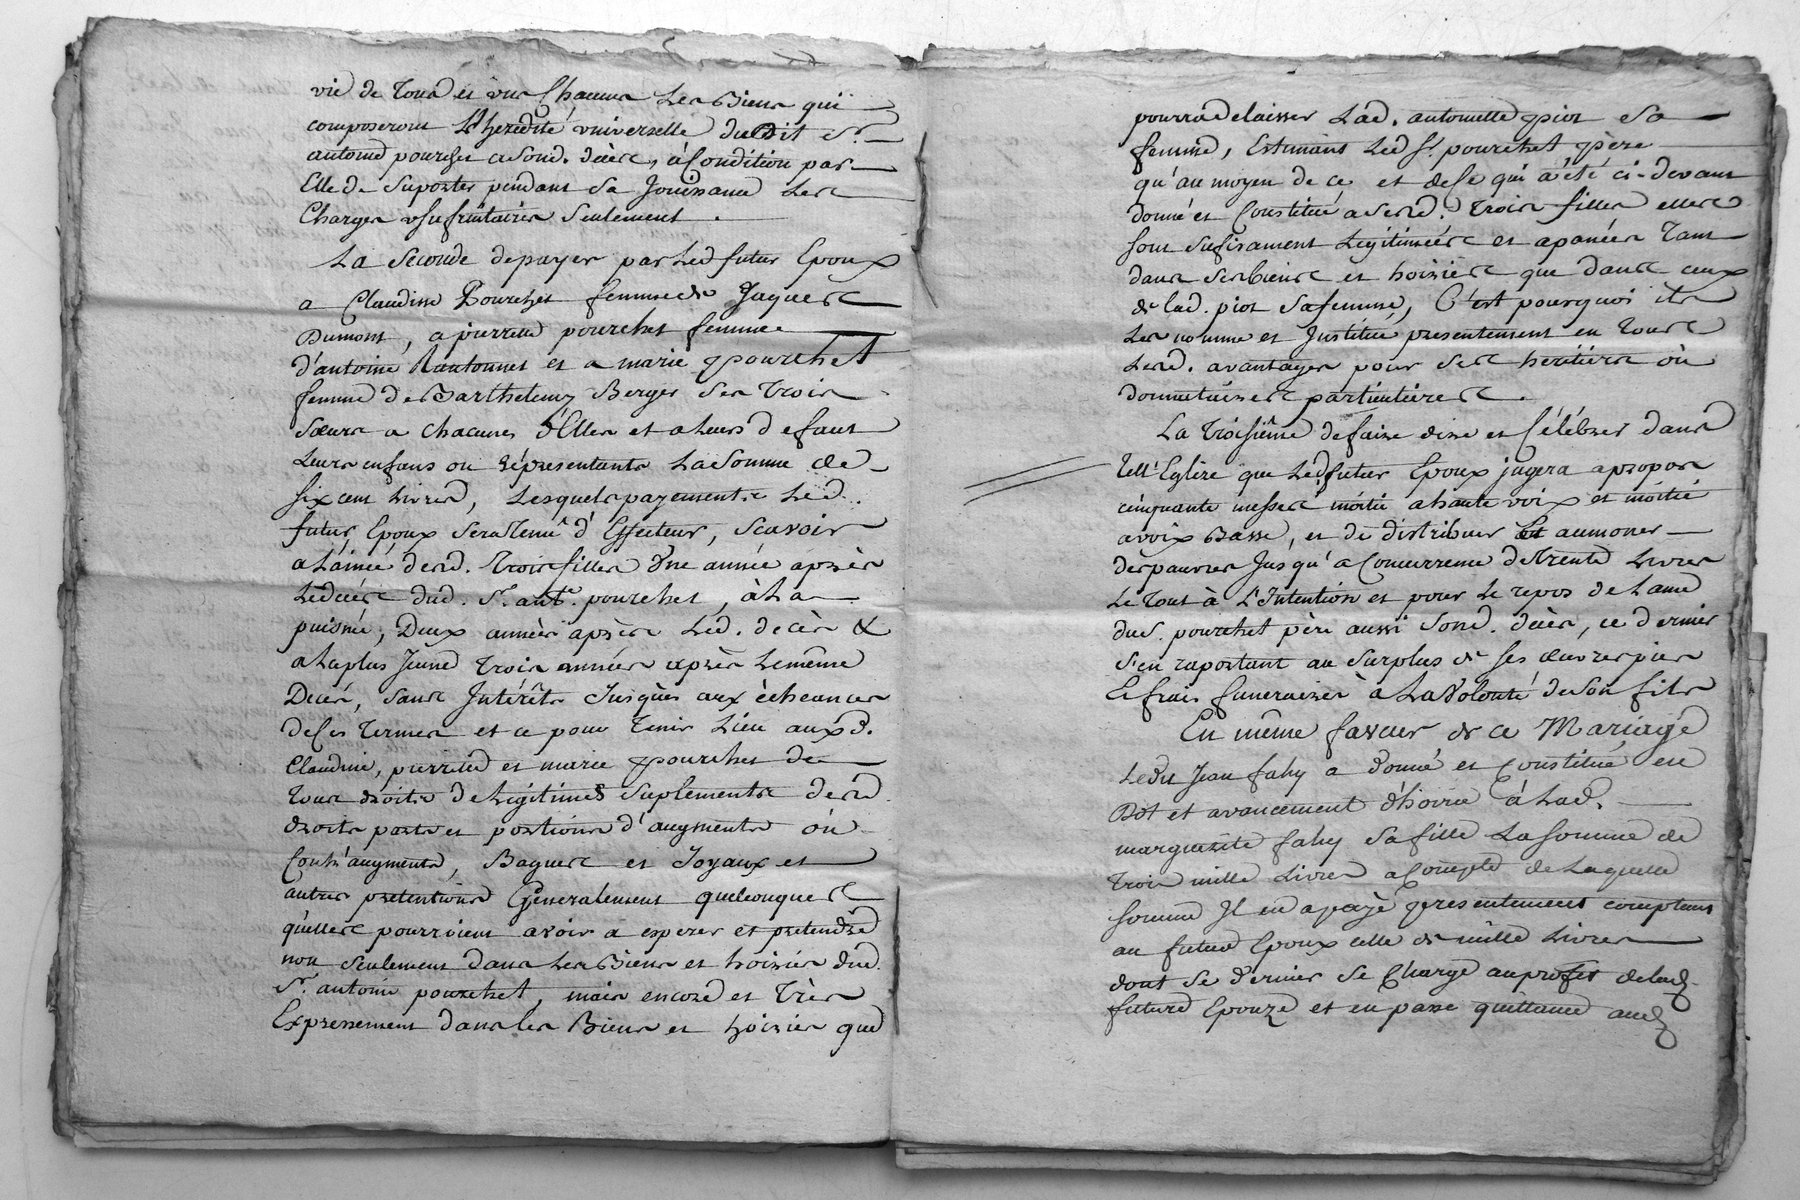 vie de tous et uns Chacuns Les Biens qui
composeront L'heredité universelle dudit Sr.
antoine pourchet a Sond. décès, à Condition par
Elle de Suporter pendant Sa Jouissance Les
Charges usufruitaires Seulement.
La Seconde de payer par Led futur Epoux
a Claudine Pourchet femme de Jaques
Dumont, a pierrette pourchet femme
d'antoine et a marie pourchet
femme de Barthelemy Berger Ses trois
Sœurs a chacunes d'Elles et a Leurs defaut
Leurs enfans ou réprésentants La Somme de
Six cent Livres, Lesquels payements Led.
futur Epoux Sera tenu d'Effectuer, Scavoir
a L'ainée desd. trois filles Une année après
Le décès dud. Sr. ante. pourchet, à La
puisnée, Deux années après Led. decès &
a La plus Jeune trois années après Le même
Decès, Sans Intérêts Jusques aux écheances
de Ces termes et ce pour tenir Lieu auxd.
Claudine, pierrette et marie pourchet de
tous droits de Légitimes Suplements desd
droits parts et portions d'augments ou
Contr'augments, Bagues et Joyaux et
autres pretentions Généralement quelconques
qu'elles pourroient avoir a esperer et pretendre
non Seulement dans Les Biens et hoiries dud.
Sr. antoine pourchet, mais encore et très
Expressement dans les Biens et hoiries que
pourra delaisser Lad. antoinette piot Sa
femme, Estimant Led Sr. pourchet père
qu'au moyen de ce et de Ce qui a été ci-devant
donné et Constitué a Sesd. trois filles elles
Sont Sufisament Legitimées et apanées tant
dans Ses biens et hoiries que dans ceux
de lad. piot Sa femme, C'est pourquoi il
Les nomme et Institue presentement en tous
Lesd. avantages pour Ses heritières ou
donnataires particulieres.
La troisième de faire dire et Célébrer dans
tell' Eglise que Led. futur Epoux jugera apropos
cinquante messes moitié a haute voix et moitié
a voix Basse, et de distribuer Et aumoner
des pauvres Jusqu'a Concurrence de trente Livres
Le tout à L'Intention et pour Le repos de L'ame
dud. pourchet père aussi Sond. décès, ce dernier
S'en raportant au Surplus de Ses œuvres pies
Et frais funeraires à La Volonté de Son fils
En même faveur de ce Mariage
Ledit Jean fahy a donné et Constitué en
Dot et avancement d'hoirie à Lad.
marguerite fahy Sa fille La Somme de
trois mille Livres a Compte de Laquelle
Somme Il en a payé presentement comptant
au futur Epoux celle de mille Livres
dont Ce dernier Se Charge au profit de lad.
future Epouze et en passe quittance aud